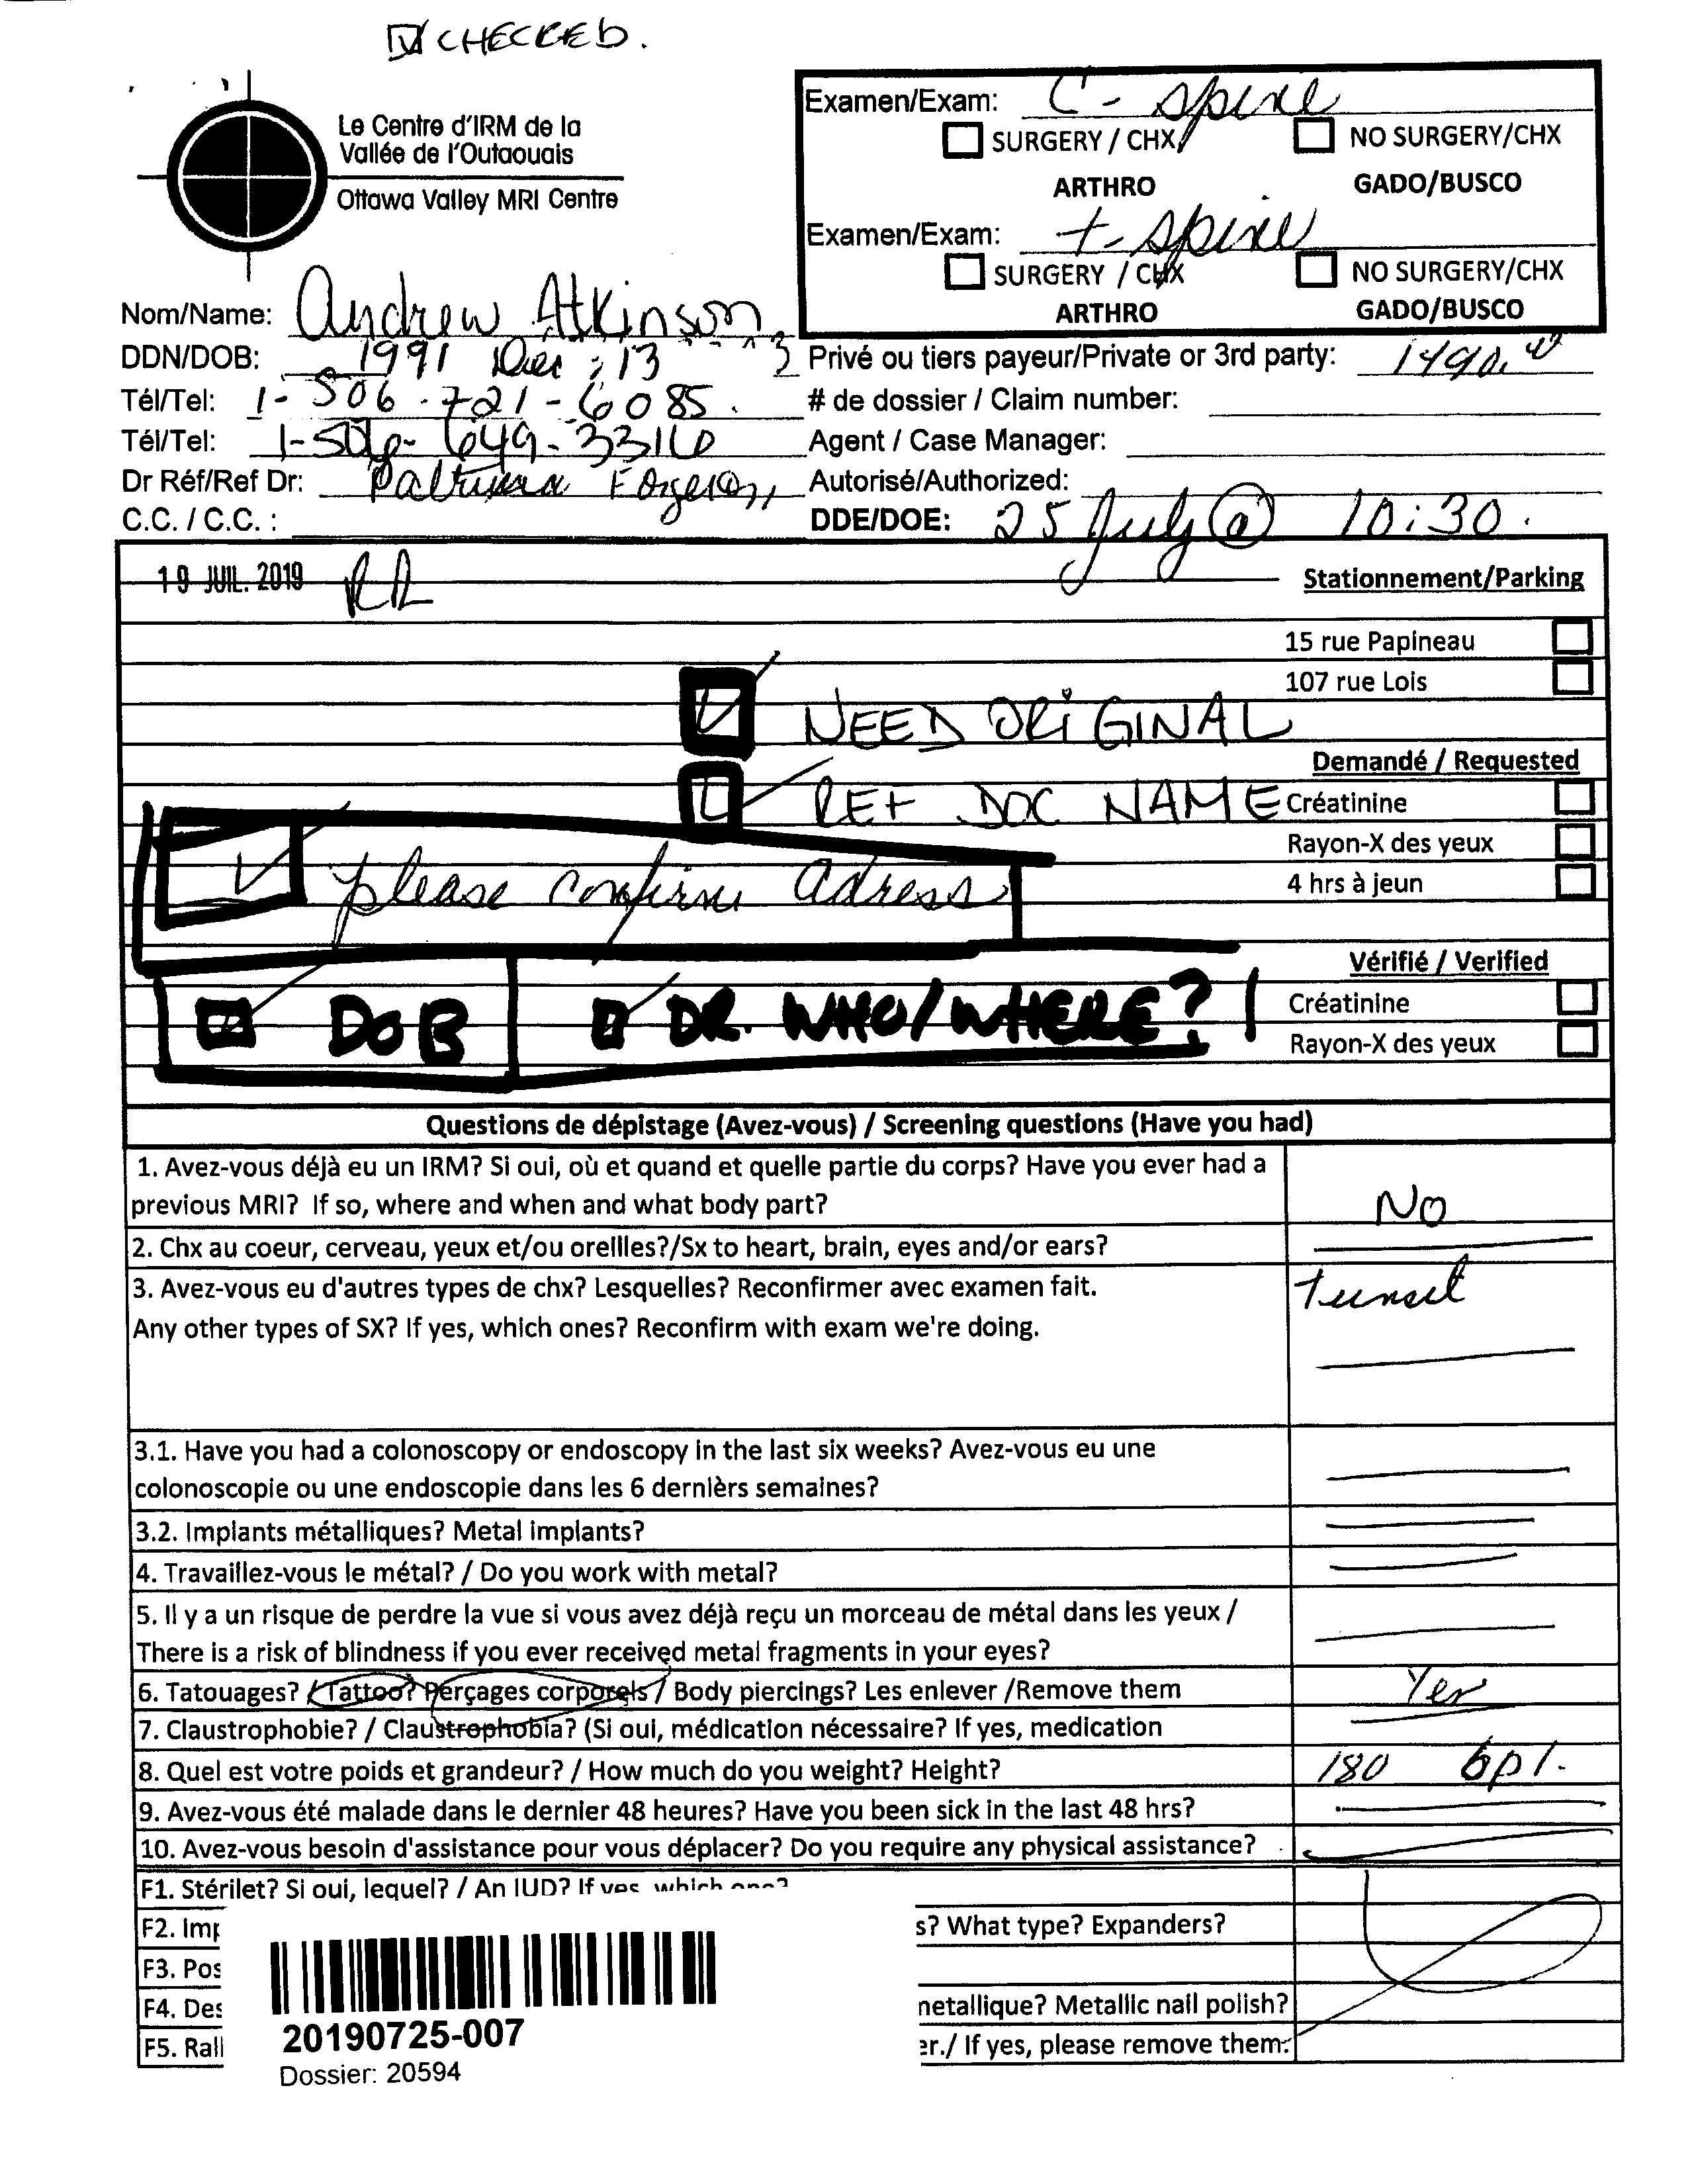 ☑ CHECKED.
Le Centre d'IRM de la
Vallée de l'Outaouais
Ottawa Valley MRI Centre
Examen/Exam: C - spine
☐ SURGERY / CHX ☐ NO SURGERY/CHX
ARTHRO GADO/BUSCO
Examen/Exam: t - spine
☐ SURGERY / CHX ☐ NO SURGERY/CHX
ARTHRO GADO/BUSCO
Nom/Name: Andrew Atkinson
DDN/DOB: 1991 Dec 13
Tél/Tel: 1-506-721-6085.
Tél/Tel: 1-506-649-3316
Dr Réf/Ref Dr:
C.C. / C.C. :
Privé ou tiers payeur/Private or 3rd party: 1490.
# de dossier / Claim number:
Agent / Case Manager:
Autorisé/Authorized:
DDE/DOE: 25 July @ 10:30.
19 JUIL. 2019 RR
Stationnement/Parking
15 rue Papineau ☐
107 rue Lois ☐
☑ NEED ORiGINAL
Demandé / Requested
☑ REF DOC NAME
Créatinine ☐
Rayon-X des yeux ☐
☑ please confirm adress
4 hrs à jeun ☐
Vérifié / Verified
☑ DOB ☑ DR. WHO/WHERE?!
Créatinine ☐
Rayon-X des yeux ☐
Questions de dépistage (Avez-vous) / Screening questions (Have you had)
1. Avez-vous déjà eu un IRM? Si oui, où et quand et quelle partie du corps? Have you ever had a
previous MRI? If so, where and when and what body part? NO
2. Chx au coeur, cerveau, yeux et/ou oreilles?/Sx to heart, brain, eyes and/or ears?
3. Avez-vous eu d'autres types de chx? Lesquelles? Reconfirmer avec examen fait.
Any other types of SX? If yes, which ones? Reconfirm with exam we're doing.
3.1. Have you had a colonoscopy or endoscopy in the last six weeks? Avez-vous eu une
colonoscopie ou une endoscopie dans les 6 dernièrs semaines?
3.2. Implants métalliques? Metal implants?
4. Travaillez-vous le métal? / Do you work with metal?
5. Il y a un risque de perdre la vue si vous avez déjà reçu un morceau de métal dans les yeux /
There is a risk of blindness if you ever received metal fragments in your eyes?
6. Tatouages? /Tattoo? Perçages corporels / Body piercings? Les enlever /Remove them Yes
7. Claustrophobie? / Claustrophobia? (Si oui, médication nécessaire? If yes, medication
8. Quel est votre poids et grandeur? / How much do you weight? Height? 180 6p1.
9. Avez-vous été malade dans le dernier 48 heures? Have you been sick in the last 48 hrs?
10. Avez-vous besoin d'assistance pour vous déplacer? Do you require any physical assistance?
F1. Stérilet? Si oui, lequel? / An IUD? If yes, which one?
F2. Imp s? What type? Expanders?
F3. Pos
F4. Des netallique? Metallic nail polish?
F5. Rall er./ If yes, please remove them.
20190725-007
Dossier: 20594